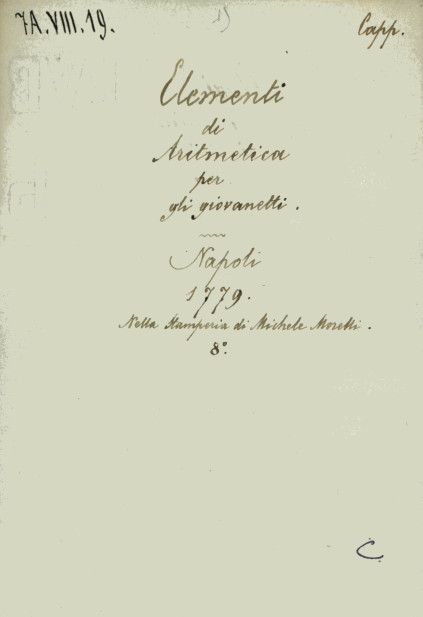 7A.VIII.19.
Capp.
Elementi
di
Aritmetica
per
gli giovanetti.
Napoli
1779.
Nella Stamperia di Michele Morelli.
8°.
C.